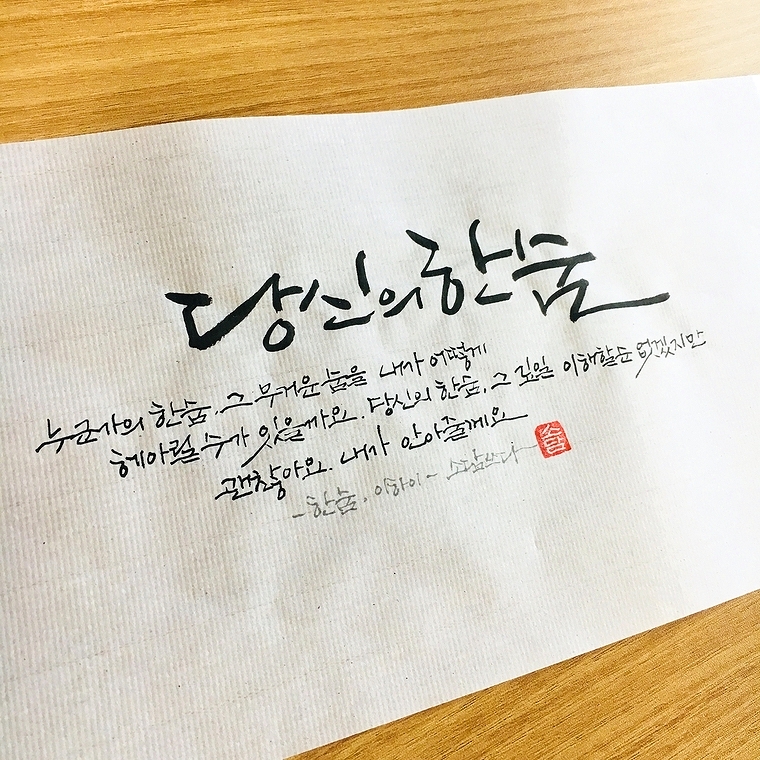 당신의 한숨
누군가의 한숨, 그 무거운 숨을 내가 어떻게
헤아릴 수가 있을까요. 당신의 한숨, 그 깊일 이해할 순 없겠지만
괜찮아요. 내가 안아줄게요
-한숨, 이하이- 소담쓰다
소담